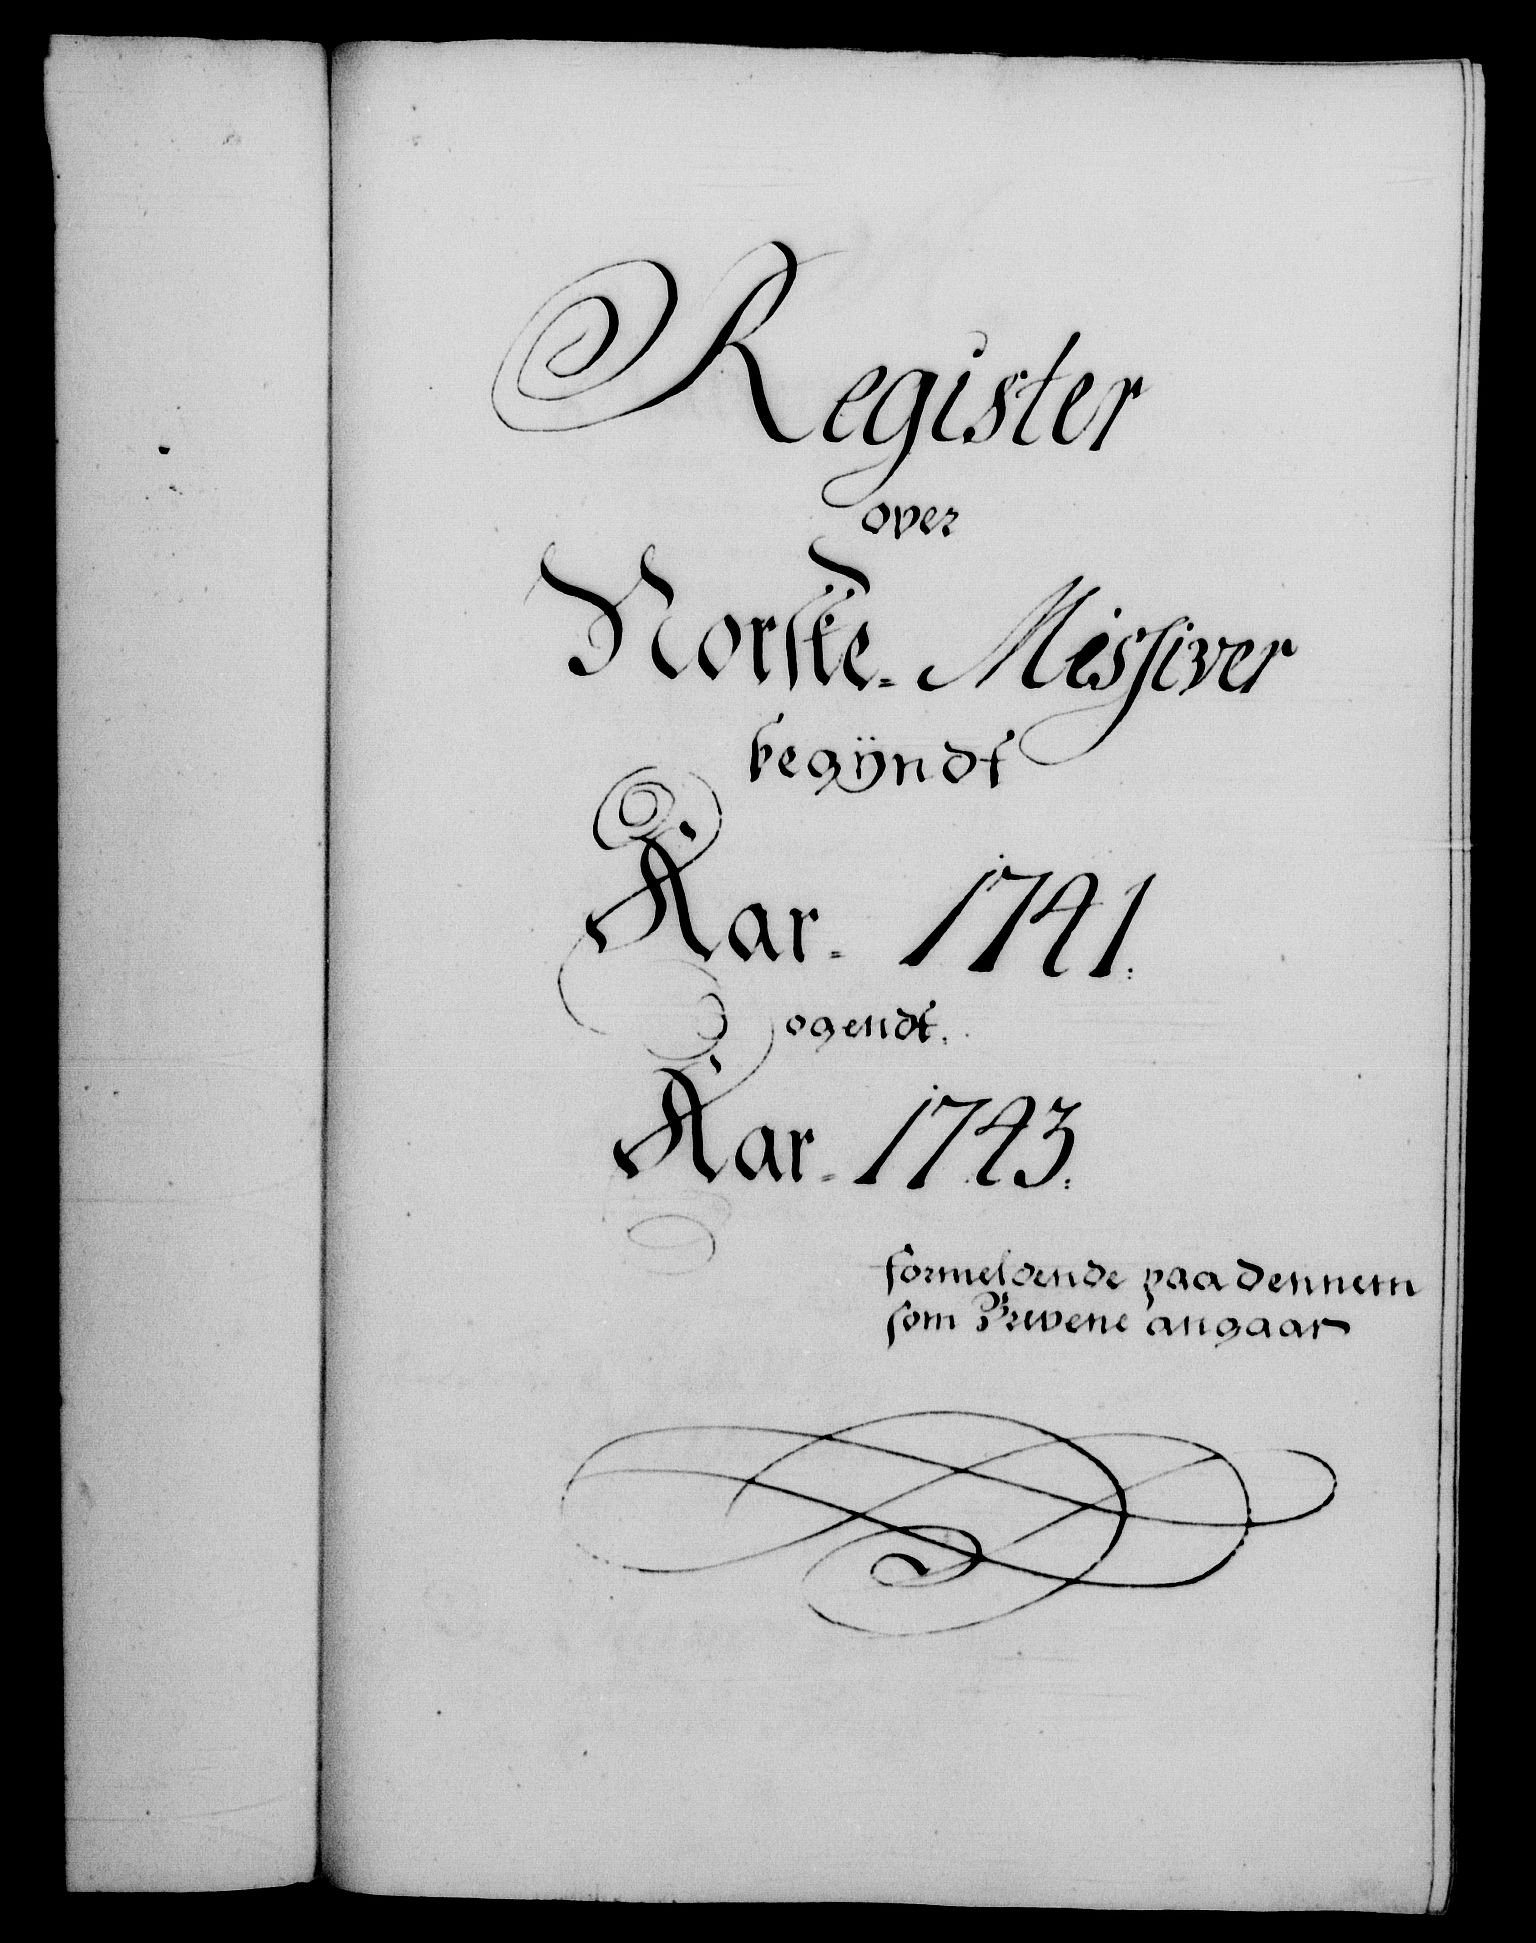 Register
over
Norske= Missiver
begÿndt
Aar= 1741.
og endt.
Aar= 1743.
formeldende paa dennem
som Brevene angaar